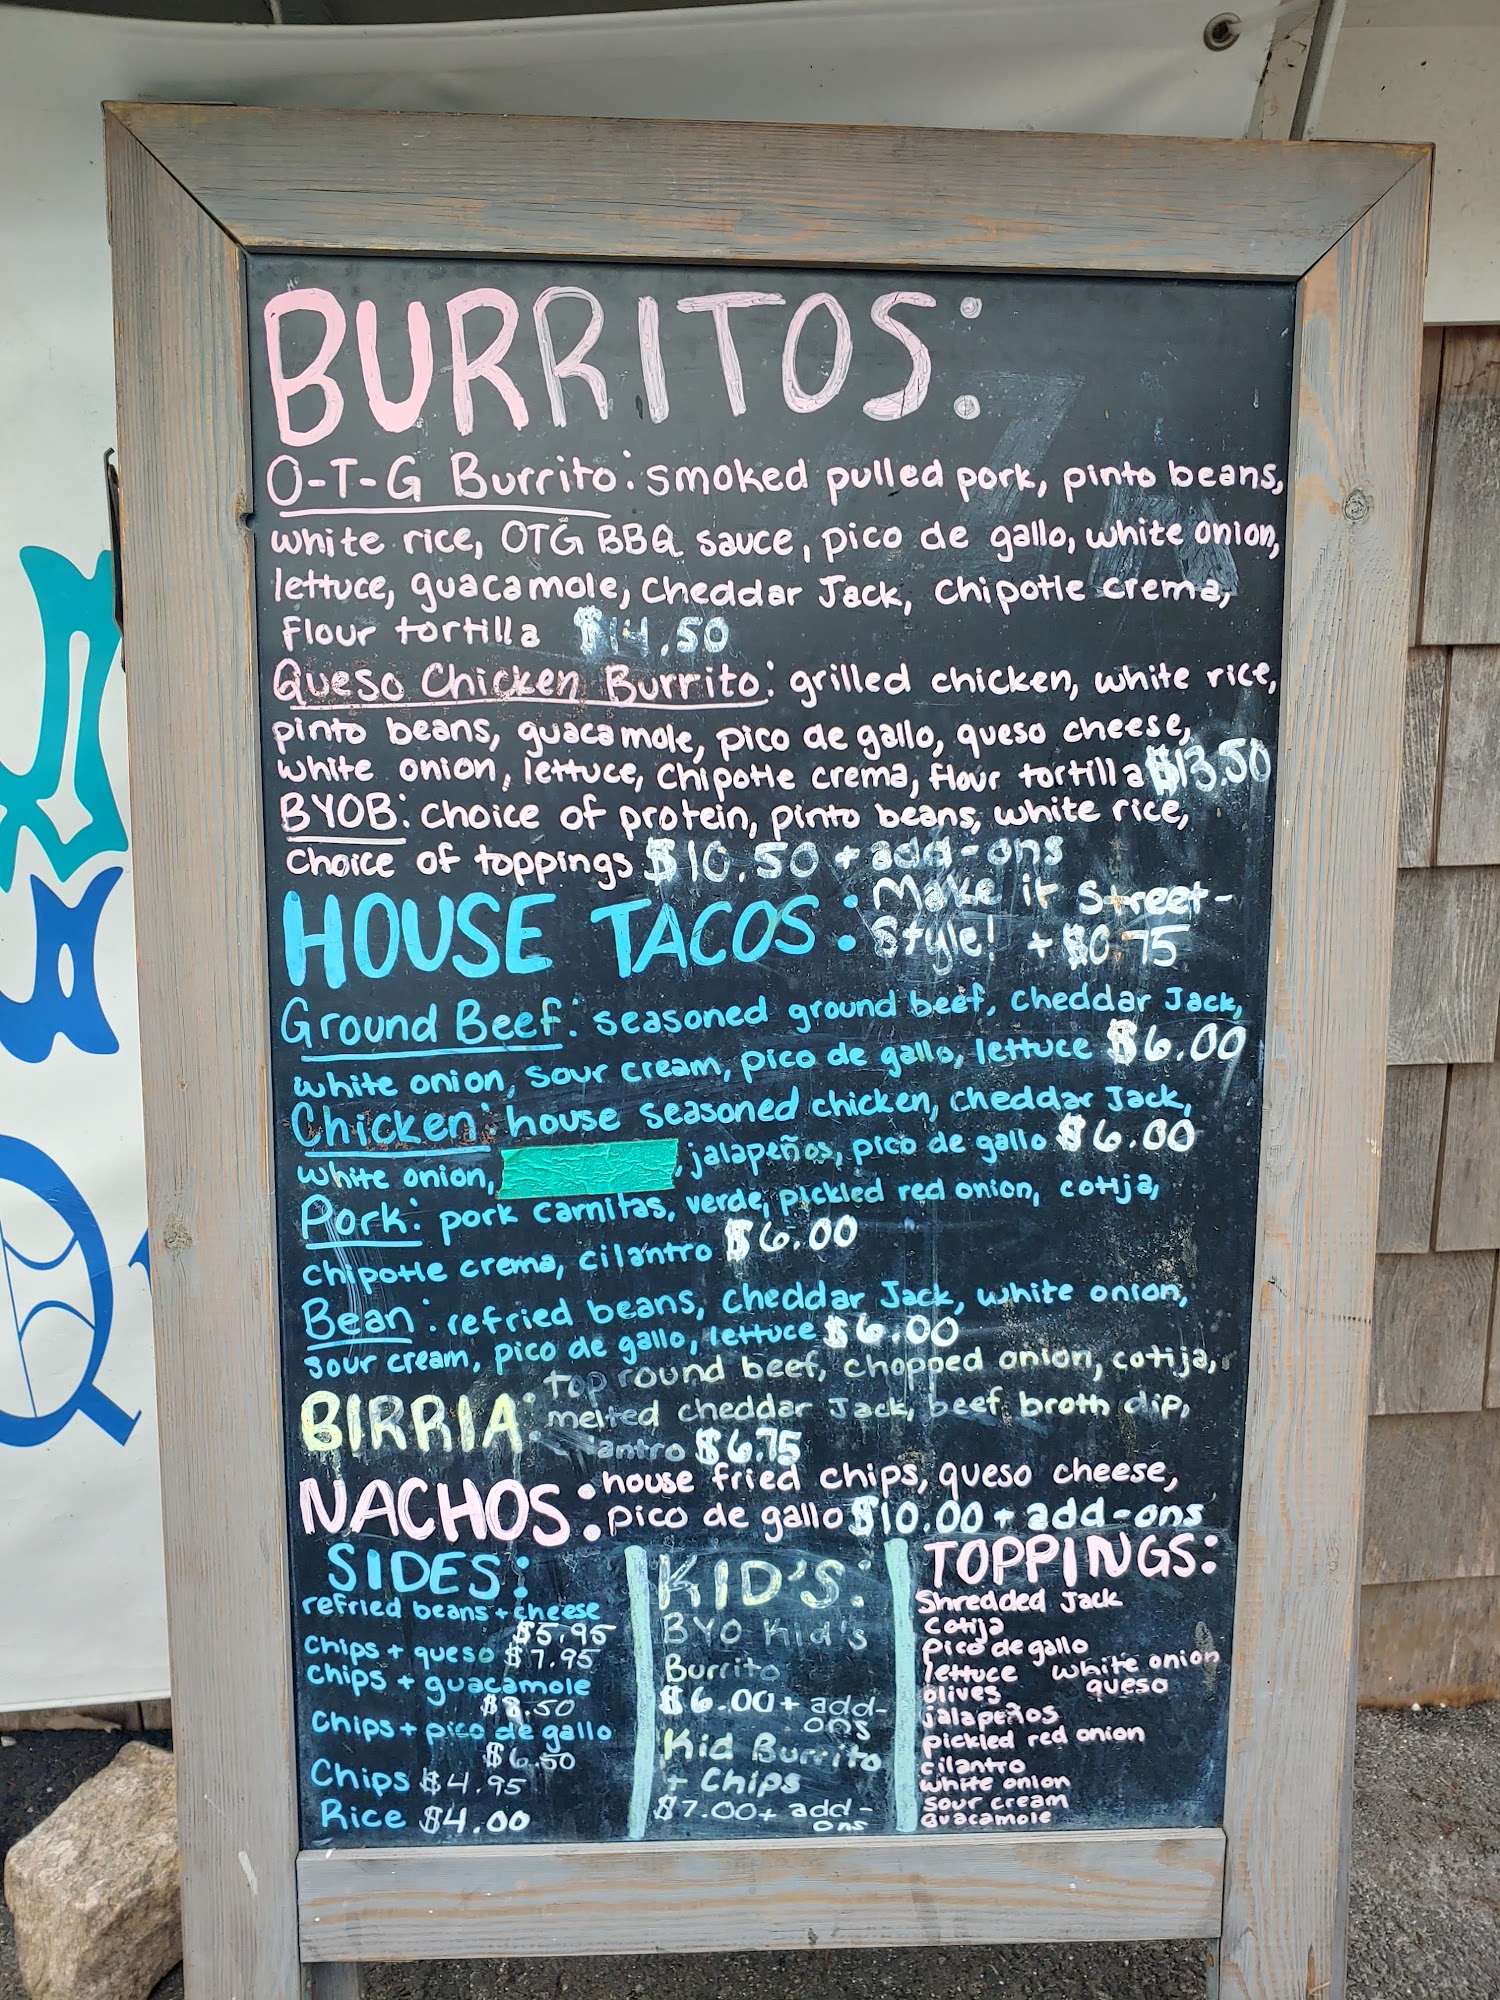 BURRITOS:
O-T-G Burrito: smoked pulled pork, pinto beans,
white rice, OTG BBQ sauce, pico de gallo, white onion,
lettuce, guacamole, Cheddar Jack, chipotle crema,
flour tortilla $14.50
Queso Chicken Burrito: grilled chicken, white rice,
pinto beans, guacamole, pico de gallo, queso cheese,
white onion, lettuce, chipotle crema, flour tortilla $13.50
BYOB: choice of protein, pinto beans, white rice,
choice of toppings $10.50 + add-ons
HOUSE TACOS: Make it Street-
Style! + $0.75
Ground Beef: seasoned ground beef, cheddar Jack,
white onion, sour cream, pico de gallo, lettuce $6.00
Chicken: house seasoned chicken, cheddar Jack,
white onion, , jalapeños, pico de gallo $6.00
Pork: pork carnitas, verde, pickled red onion, cotija,
chipotle crema, cilantro $6.00
Bean: refried beans, cheddar Jack, white onion,
sour cream, pico de gallo, lettuce $6.00
BIRRIA: top round beef, chopped onion, cotija,
melted cheddar Jack, beef broth dip,
antro $6.75
NACHOS: house fried chips, queso cheese,
pico de gallo $10.00 + add-ons
SIDES:
refried beans + cheese
$5.95
chips + queso $7.95
chips + guacamole
$8.50
chips + pico de gallo
$6.50
Chips $4.95
Rice $4.00
KID'S:
BYO Kid's
Burrito
$6.00 + add-
ons
Kid Burrito
+ Chips
$7.00 + add-
ons
TOPPINGS:
Shredded Jack
cotija
pico de gallo
lettuce white onion
olives queso
jalapeños
pickled red onion
cilantro
white onion
sour cream
Guacamole